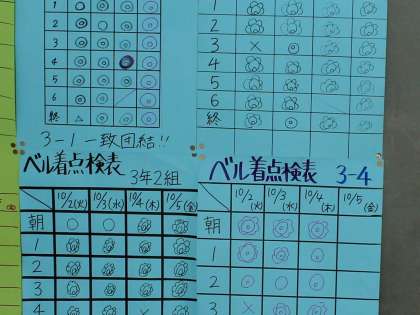 1
2
3
4
5
6
終
3-1 一致団結!!
1
2
3
4
5
6
終
ベル着点検表
3年2組
10/2(火) 10/3(水) 10/4(木) 10/5(金)
朝
1
2
3
ベル着点検表 3-4
10/2(火) 10/3(水) 10/4(木) 10/5(金)
朝
1
2
3